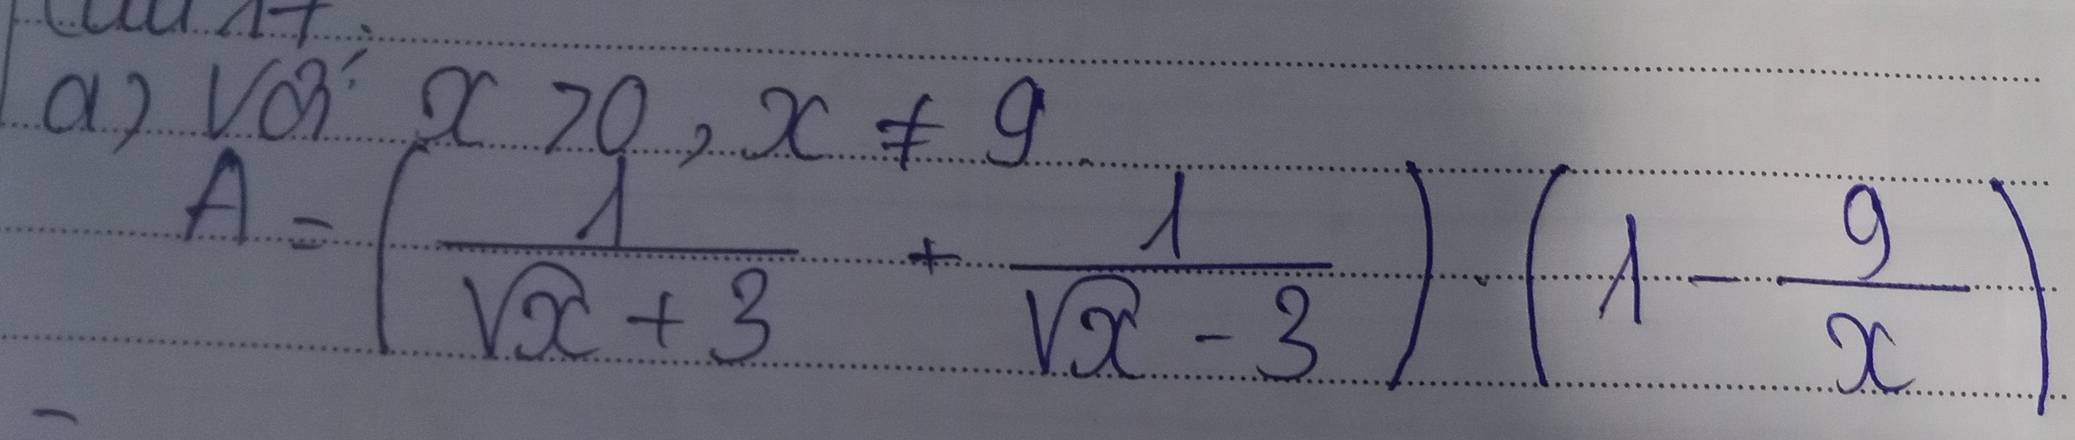 Câu 17:
a) Với x > 0, x ≠ 9.
A = ( 1/(√x + 3) + 1/(√x - 3) ) . ( 1 - 9/x )